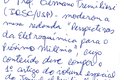 Prof. Germano Tremiliosi
(IQSC/USP) - moderou a
mesa redonda: Perspectivas
da eletroquímica para o
próximo milênio, cujo
conteúdo deve compor
o artigo do volume especial